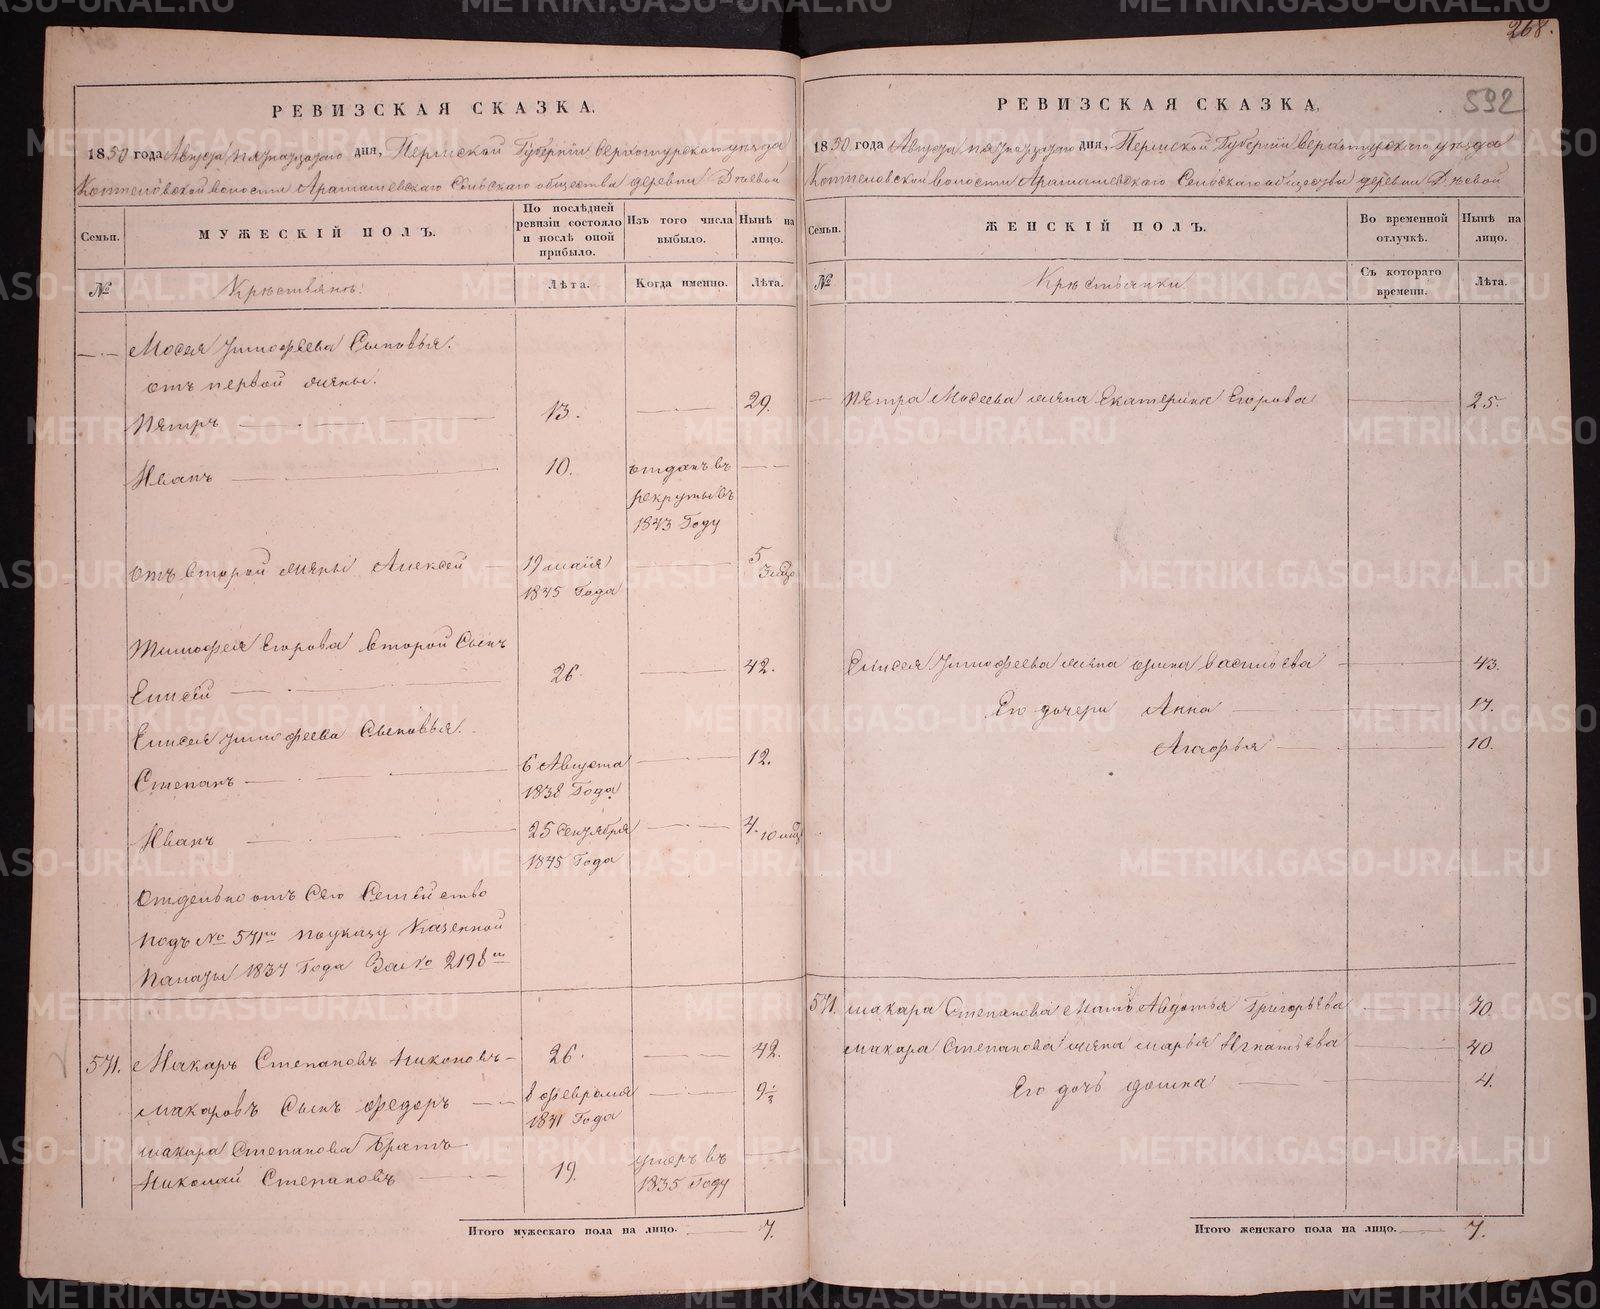 268.
592
РЕВИЗСКАЯ СКАЗКА.
1850 года Августа пятнадцатого дня, Пермской Губернии Верхотурского уезда
Коптеловской волости Арамашевскаго Сельскаго общества деревни Деевой
Семьи.
МУЖЕСКІЙ ПОЛЪ.
По послѣдней ревизіи состояло и послѣ оной прибыло.
Изъ того числа выбыло.
Нынѣ на лицо.
№
Крѣстьянъ:
Лѣта.
Когда именно.
Лѣта.
Мосея Тимофеева Сыновья.
отъ первой жены.
Пѣтръ 13. 29.
Иванъ 10. отданъ въ
рекруты въ
1843 Году
отъ второй жены Алексей 19 маія 5
1845 Года 3 мѣс
Тимофея Егорова второй Сынъ
Елисей 26 42.
Елисея Тимофеева Сыновья.
Степанъ 6 Августа 12.
1838 Года
Иванъ 25 Сентября 4. 10 мѣс
1845 Года
отдельно отъ Сего Семейство
подъ № 571м по указу Казенной
Палаты 1837 Года За № 2198м
571. Макаръ Степановъ Никоновъ 26. 42.
макаровъ Сынъ Федоръ 8 февраля 9½
1841 Года
макара Степанова Братъ
Николай Степановъ 19. умеръ въ
1835 Году
Итого мужескаго пола на лицо. 7.
РЕВИЗСКАЯ СКАЗКА.
1850 года Августа пятнадцатого дня, Пермской Губерніи Верхотурскаго уезда
Коптеловской волости Арамашевскаго Сельскаго общества деревни Деевой
Семьи.
ЖЕНСКІЙ ПОЛЪ.
Во временной отлучкѣ.
Нынѣ на лицо.
№
Крѣстьянки
Съ котораго времени.
Лѣта.
Пѣтра Мосеева жена Екатерина Егорова 25.
Елисея Тимофеева жена Ирина Васильева 43.
Его дочери Анна 17.
Лукерья 10.
571. макара Степанова Мать Авдотья Григорьева 70.
макара Степанова жена марья Игнатьева 40
Его дочь 4.
Итого женскаго пола на лицо. 7.
METRIKI.GASO-URAL.RU